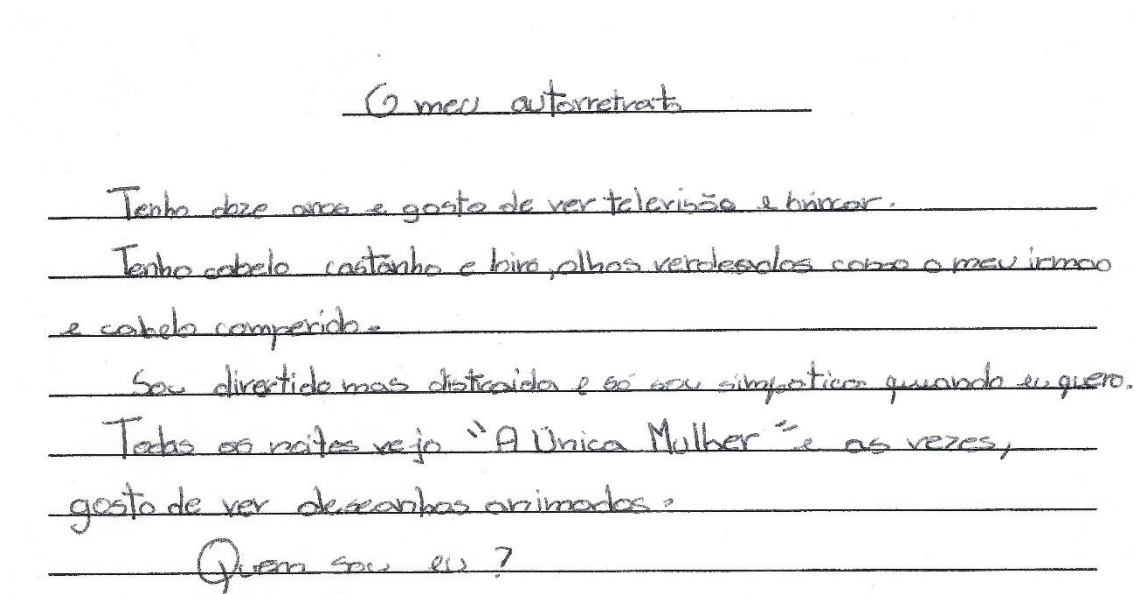 O meu autorretrato
Tenho doze anos e gosto de ver televisão e brincar.
Tenho cabelo castanho e liro, olhos verdeados como o meu irmão
e cabelo comperido.
Sou divertida mas distraida e só sou simpatica quuando eu quero.
Todas as noites vejo "A Única Mulher" e as vezes,
gosto de ver deseanhos animados.
Quem sou eu?